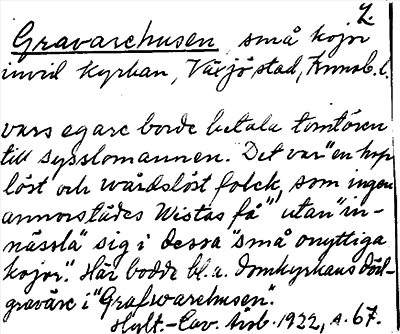 2.
Gravarehusen, små kojor
invid kyrkan, Växjö stad, Kronob. l.
vars egare borde betala tomtören
till sysslomannen. Det var "en hop
löst och wårdslöst folck, som ingen
annorstädes Wistas få" utan "in-
nässla" sig i dessa "små onyttiga
kojor". Här bodde bl. a. domkyrkans död-
grävare i "Grafwarehusen".
Hylt.-Cav. årsb. 1922, s. 67.